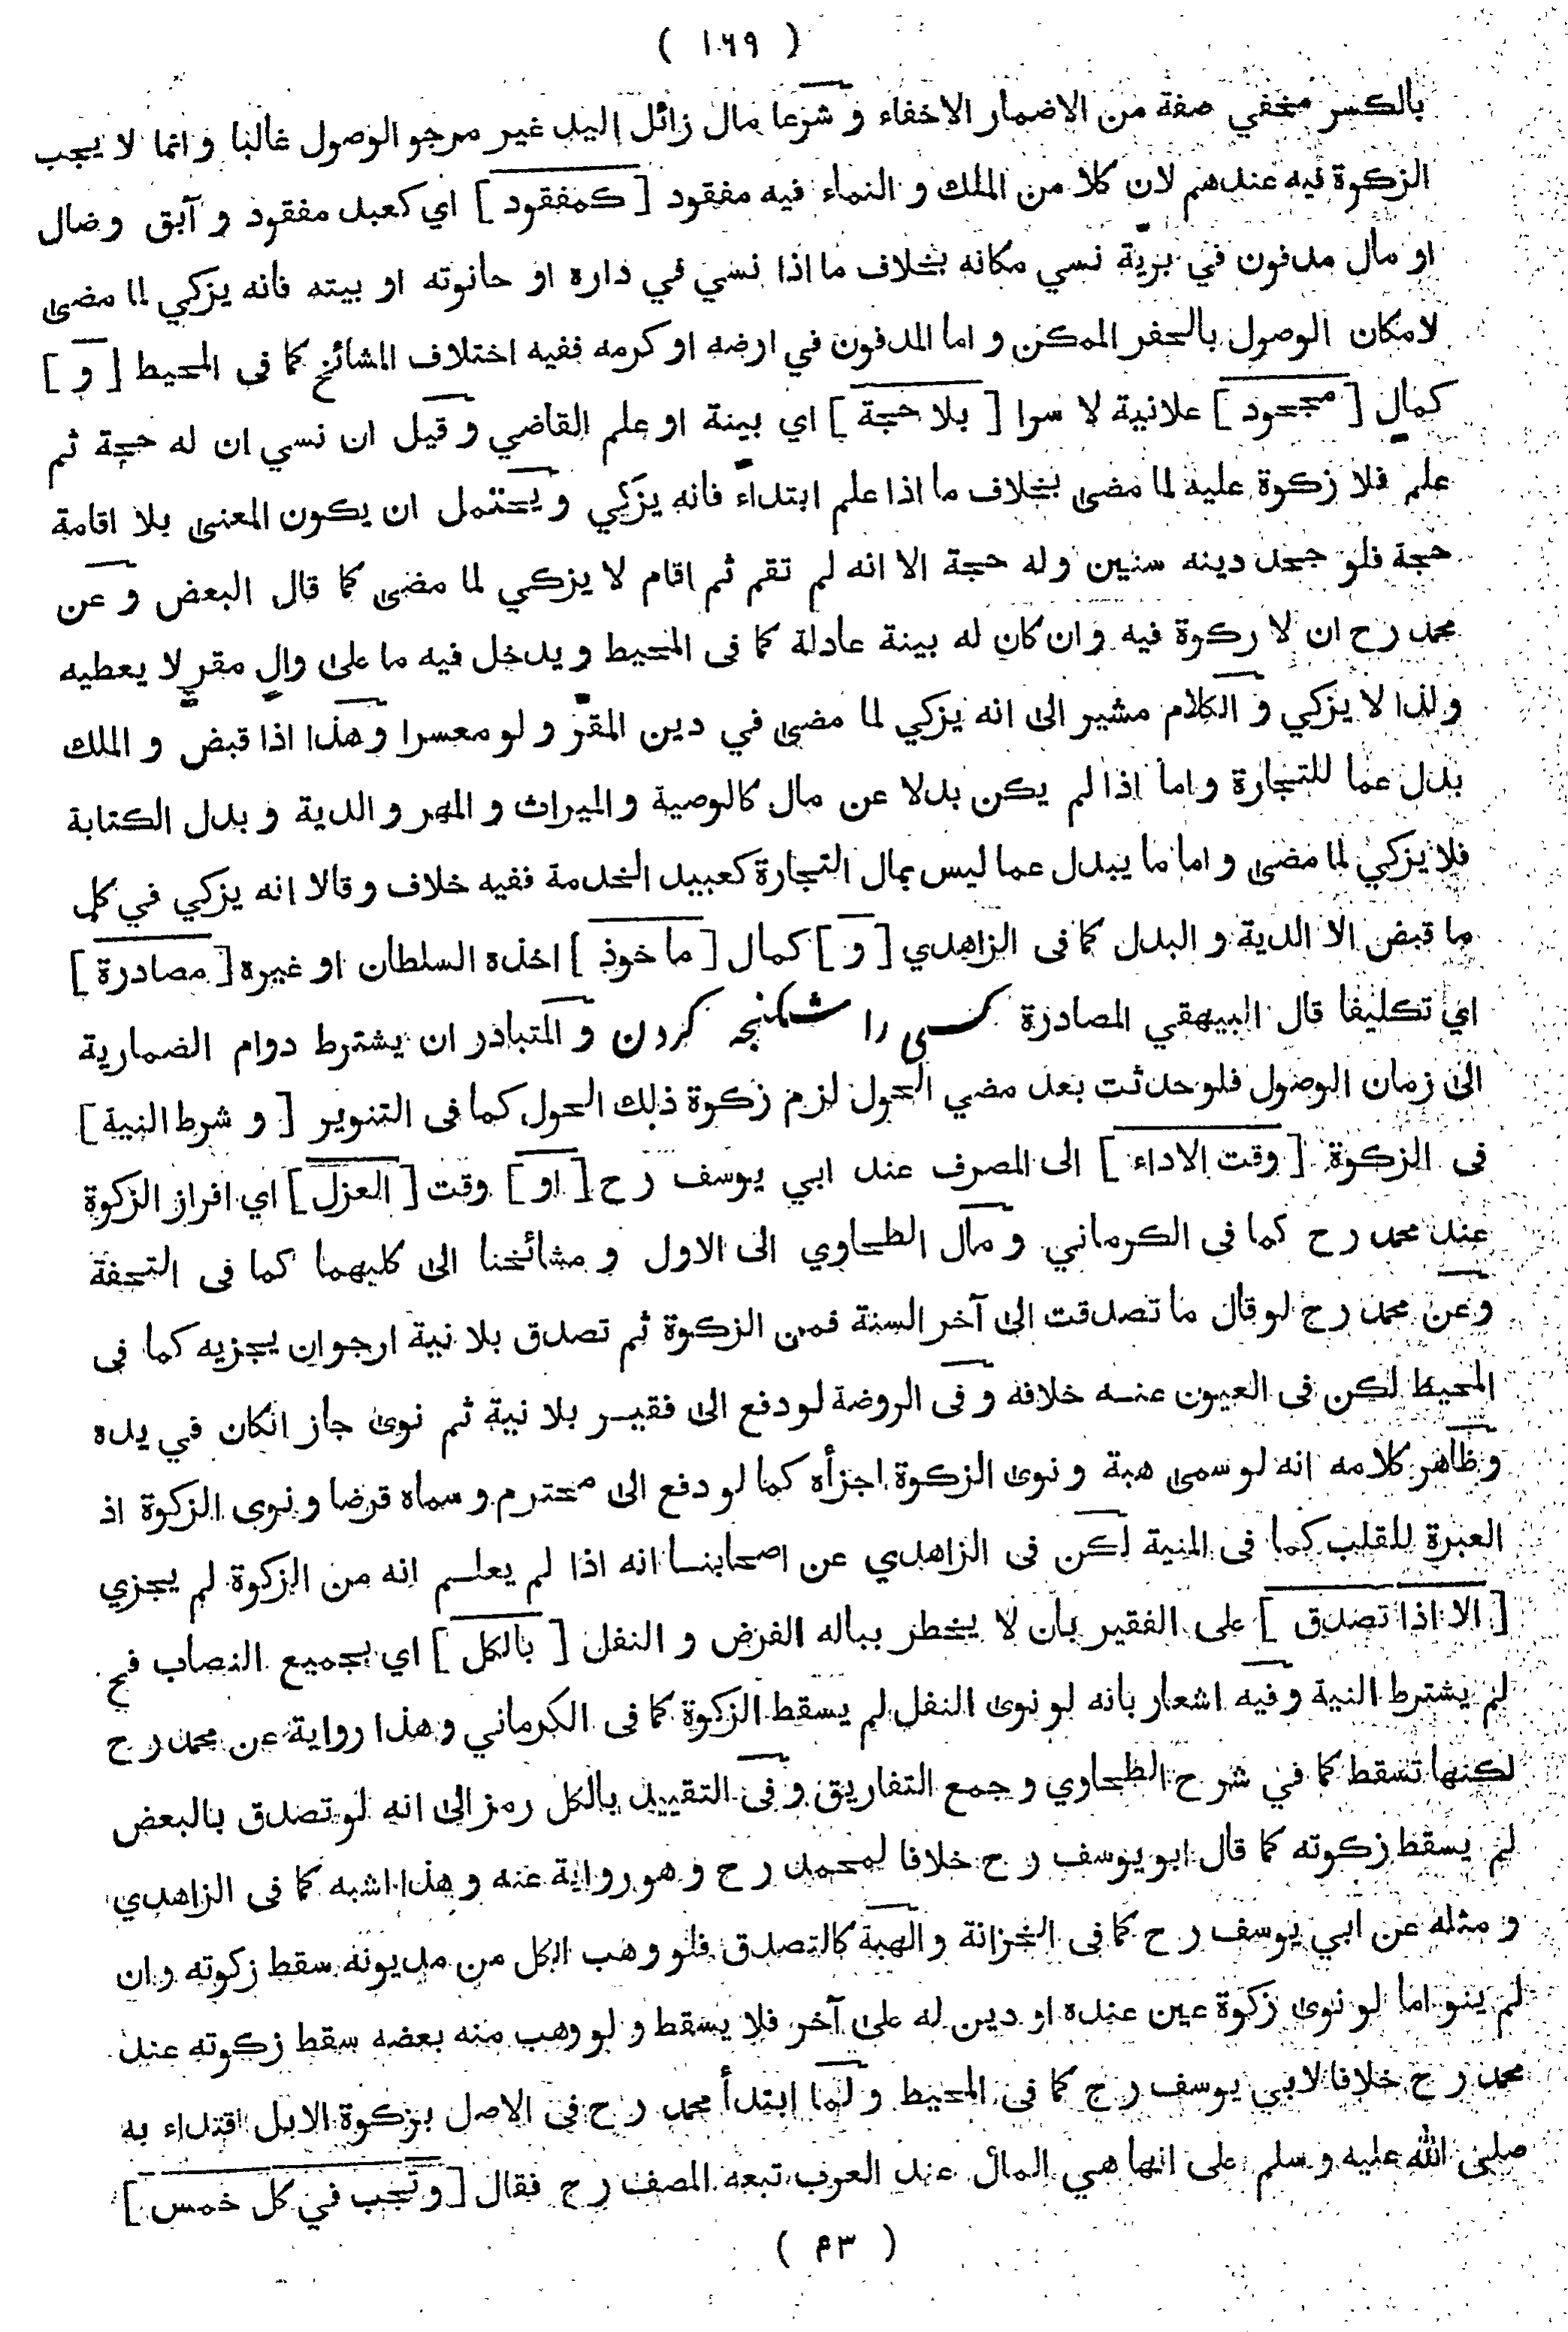 ( ١٦٩ )
بالكسر مخفي صفة من الاضمار الاخفاء و شرعا مال زائل اليد غير مرجو الوصول غالبا و انما لا يجب
الزكوة فيه عندهم لان كلا من الملك و النماء فيه مفقود [ كمفقود ] اي كعبد مفقود و آبق و ضال
او مال مدفون في بريّة نسي مكانه بخلاف ما اذا نسي في داره او حانوته او بيته فانه يزكي لما مضى
لامكان الوصول بالحفر الممكن و اما المدفون في ارضه او كرمه ففيه اختلاف المشائخ كما فى المحيط [ و ]
كمالٍ [ مجحود ] علانية لا سرا [ بلا حجة ] اي بينة او علم القاضي و قيل ان نسي ان له حجة ثم
علم فلا زكوة عليه لما مضى بخلاف ما اذا علم ابتداءً فانه يزكي و يحتمل ان يكون المعنى بلا اقامة
حجة فلو جحد دينه سنين و له حجة الا انه لم تقم ثم اقام لا يزكي لما مضى كما قال البعض و عن
محمد رح ان لا زكوة فيه و ان كان له بينة عادلة كما فى المحيط و يدخل فيه ما على والٍ مقرٍّ لا يعطيه
و لذا لا يزكي و الكلام مشير الى انه يزكي لما مضى في دين المقرّ و لو معسرا و هذا اذا قبض و الملك
بدل عما للتجارة و اما اذا لم يكن بدلا عن مال كالوصية و الميراث و المهر و الدية و بدل الكتابة
فلا يزكي لما مضى و اما ما يبدل عما ليس بمال التجارة كعبيد الخدمة ففيه خلاف و قالا انه يزكي في كل
ما قبض الا الدية و البدل كما فى الزاهدي [ و ] كمال [ ماخوذ ] اخذه السلطان او غيره [ مصادرة ]
اي تكليفا قال البيهقي المصادرة كسى را شكنجه كردن و المتبادر ان يشترط دوام الضمارية
الى زمان الوصول فلو حدثت بعد مضي الحول لزم زكوة ذلك الحول كما فى التنوير [ و شرط النية ]
فى الزكوة [ وقت الاداء ] الى المصرف عند ابي يوسف رح [ او ] وقت [ العزل ] اي افراز الزكوة
عند محمد رح كما فى الكرماني و مال الطحاوي الى الاول و مشائخنا الى كليهما كما فى التحفة
و عن محمد رح لو قال ما تصدقت الى آخر السنة فمن الزكوة ثم تصدق بلا نية ارجو ان يجزيه كما فى
المحيط لكن فى العيون عنه خلافه و فى الروضة لو دفع الى فقير بلا نية ثم نوى جاز انكان في يده
و ظاهر كلامه انه لو سمى هبة و نوى الزكوة اجزأه كما لو دفع الى محترم و سماه قرضا و نوى الزكوة اذ
العبرة للقلب كما فى المنية لكن فى الزاهدي عن اصحابنا انه اذا لم يعلم انه من الزكوة لم يجزي
[ الا اذا تصدق ] على الفقير بان لا يخطر بباله الفرض و النفل [ بالكل ] اي بجميع النصاب فح
لم يشترط النية و فيه اشعار بانه لو نوى النفل لم يسقط الزكوة كما فى الكرماني و هذا رواية عن محمد رح
لكنها تسقط كما في شرح الطحاوي و جمع التفاريق و فى التقييد بالكل رمز الى انه لو تصدق بالبعض
لم يسقط زكوته كما قال ابو يوسف رح خلافا لمحمد رح و هو رواية عنه و هذا اشبه كما فى الزاهدي
و مثله عن ابي يوسف رح كما فى الخزانة و الهبة كالتصدق فلو وهب الكل من مديونه سقط زكوته و ان
لم ينو اما لو نوى زكوة عين عنده او دين له على آخر فلا يسقط و لو وهب منه بعضه سقط زكوته عند
محمد رح خلافا لابي يوسف رح كما فى المحيط و لما ابتدأ محمد رح فى الاصل بزكوة الابل اقتداء به
صلى الله عليه و سلم على انها هي المال عند العرب تبعه المصف رح فقال [ و تجب في كل خمس ]
( ٤٣ )